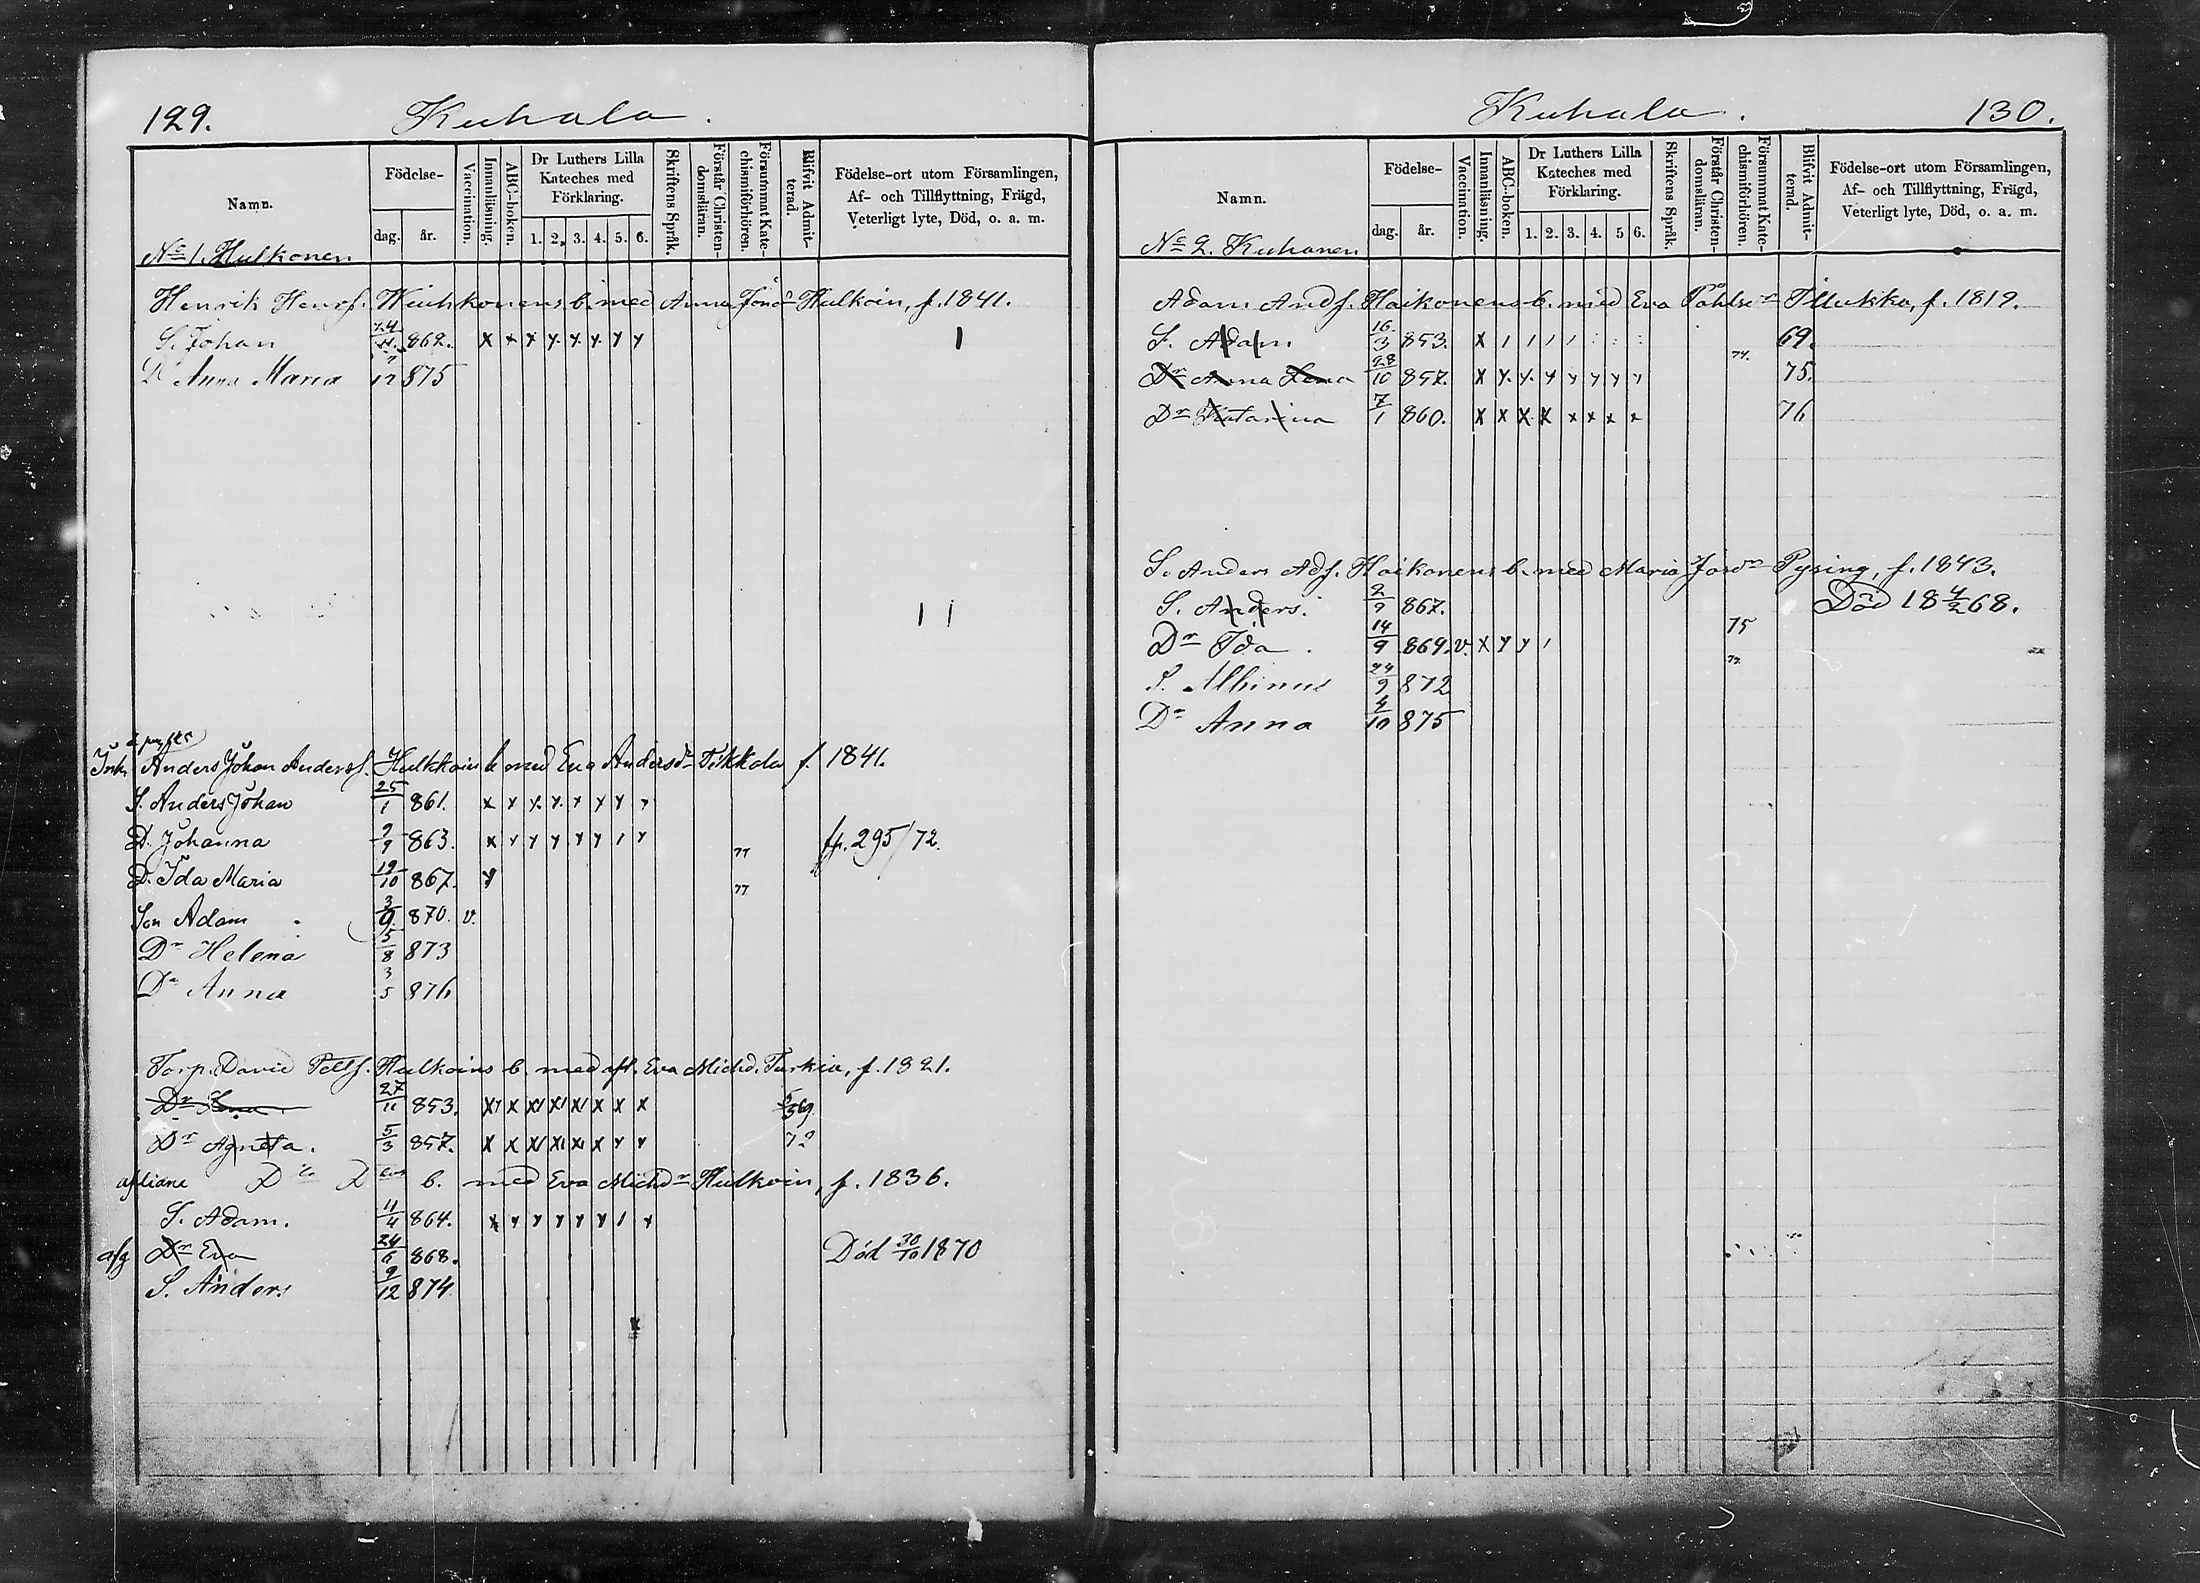 129. Kuhala.
Namn.
Födelse-
dag. år.
Vaccination.
Innanläsning.
ABC-boken.
Dr Luthers Lilla Kateches med Förklaring.
1. 2. 3. 4. 5. 6.
Skriftens Språk.
Förstår Christen-domsläran.
Försummat Kate-chismiförhören.
Blifvit Admit-terad.
Födelse-ort utom Församlingen, Af- och Tillflyttning, Frägd, Veterligt lyte, Död, o. a. m.
No 1. Hulkonen
Henrik Henrs. b. med Anna Hulkoin, f. 1841.
S. Johan 24/11 862. x x x x x x x x
Dr Anna Maria 12 875
Inh. Anders Johan Anderss. Hulkkoins b med Eva Andersdr Tikkola f. 1841.
S. Anders Johan 25/1 861. x x x x x x x x
D. Johanna 9/9 863. x x x x x x 1 x 77 fl. 295/72.
D. Ida Maria 19/10 867. x 77
Son Adam 3/9 870. v.
Dr Helena 5/8 873
Dr Anna 3/5 876
Torp. David Pettf. Hulkoins b. med afl. Eva Michd. Turkia, f. 1821.
Dr 27/11 853. x x x x x x x x 69
Dr Agneta. 5/3 857. x x x x x x x x 72
aflidne Do D b. med Eva Michdr Hulkoin, f. 1836.
S. Adam. 11/4 864. x x x x x x 1 x
afg Dr Eva 24/6 868. Död 30/10 1870
S. Anders 9/12 874
Kuhala. 130.
Namn.
Födelse-
dag. år.
Vaccination.
Innanläsning.
ABC-boken.
Dr Luthers Lilla Kateches med Förklaring.
1. 2. 3. 4. 5 6.
Skriftens Språk.
Förstår Christen-domsläran.
Försummat Kate-chismiförhören.
Blifvit Admit-terad.
Födelse-ort utom Församlingen, Af- och Tillflyttning, Frägd, Veterligt lyte, Död, o. a. m.
No 2. Kuhanen
Adam Andf. Haikonens b. med Eva Påhlsdr Tllukka, f. 1819.
S. Adam 16/3 853. x 1 1 1 1 69.
Dr Anna Lena 28/10 857. x x x x x x x x 74. 75.
Dr Katarina 7/1 860. x x x x x x x x 76
S. Anders Adf. Haikonens b. med Maria Pysing, f. 1843.
S. Anders. 2/9 867. Död 18 4/2 68.
Dr Ida. 14/9 869. v. x x x 1 75
S. Albinus 24/9 872 77.
Dr Anna 4/10 875